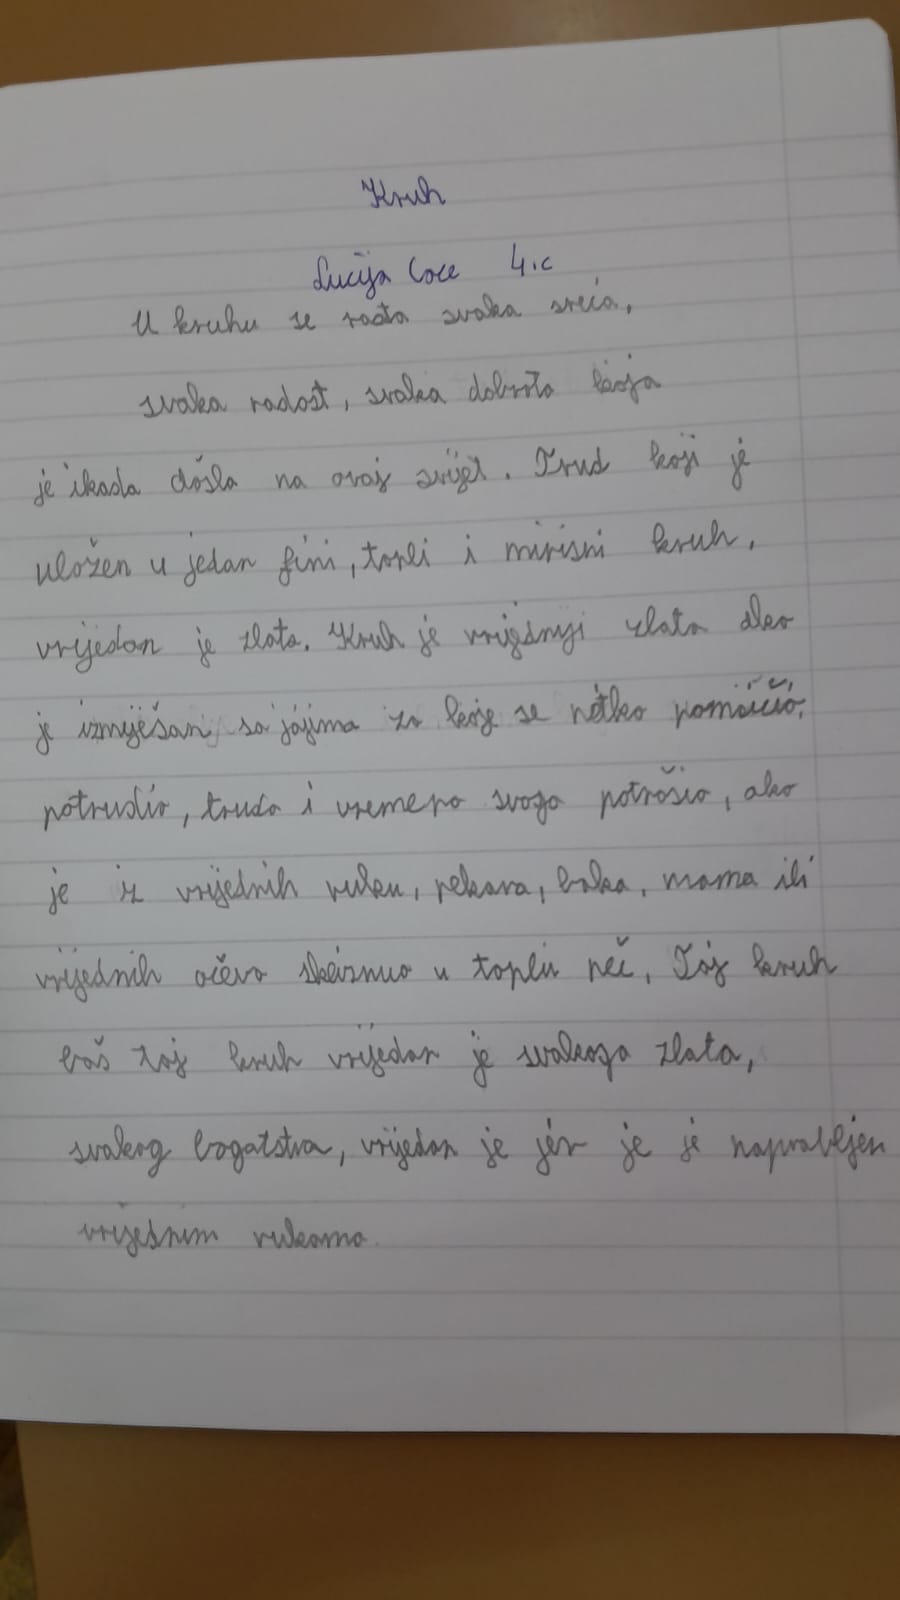 Kruh
Lucija Coce 4.c
U kruhu se rađa svaka sreća,
svaka radost, svaka dobrota koja
je ikada došla na ovaj svijet. Trud koji je
uložen u jedan fini, topli i mirisni kruh,
vrijedan je zlata. Kruh je vrijedniji zlata ako
je izmiješan sa jajima za koje se netko pomučio,
potrudio, truda i vremena svoga potrošio, ako
je iz vrijednih ruku, pekara, baka, mama ili
vrijednih očeva u toplu peć. Taj kruh
baš taj kruh vrijedan je svakoga zlata,
svakog bogatstva, vrijedan je jer je je napravljen
vrijednim rukama.